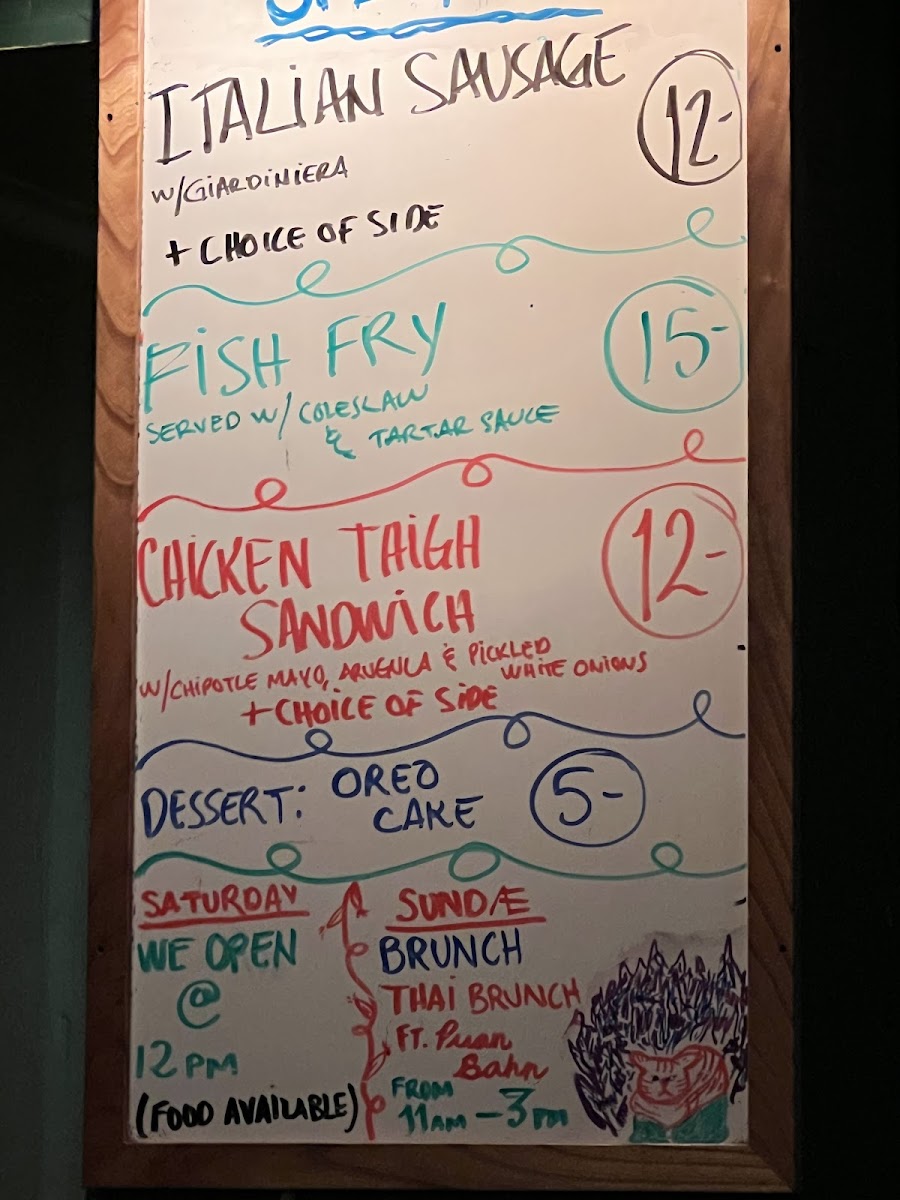 ITALIAN SAUSAGE 12-
W/GIARDINIERA
+ CHOICE OF SIDE
FISH FRY 15-
SERVED W/ COLESLAW
& TARTAR SAUCE
CHICKEN THIGH 12-
SANDWICH
W/CHIPOTLE MAYO, ARUGULA & PICKLED
WHITE ONIONS
+ CHOICE OF SIDE
DESSERT: OREO
CAKE 5-
SATURDAY
WE OPEN
@
12 PM
(FOOD AVAILABLE)
SUNDÆ
BRUNCH
THAI BRUNCH
FT. Puan
Bahn
FROM
11AM - 3PM